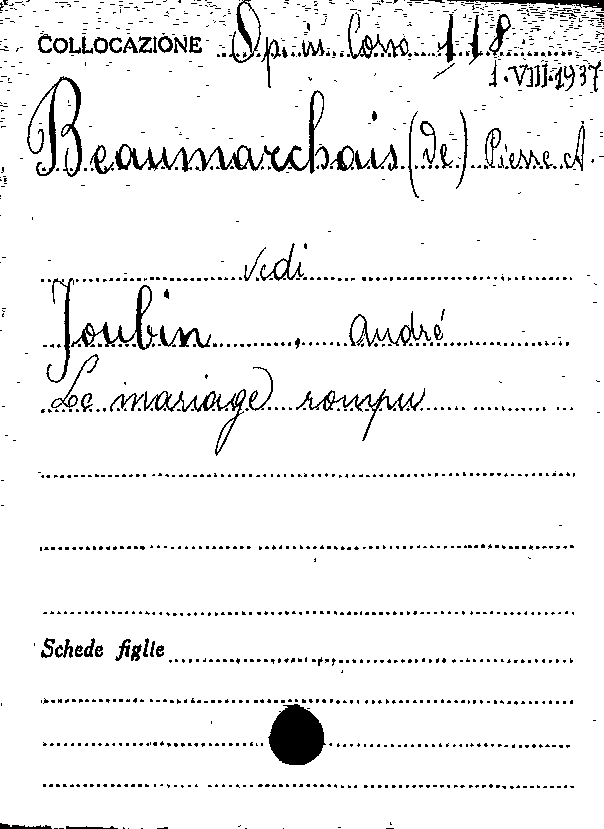 COLLOCAZIONE Op. in Corso 118
1.VIII.1937
Beaumarchais (de) Pierre A.
vedi
Joubin, André
Le mariage rompu
Schede figlie